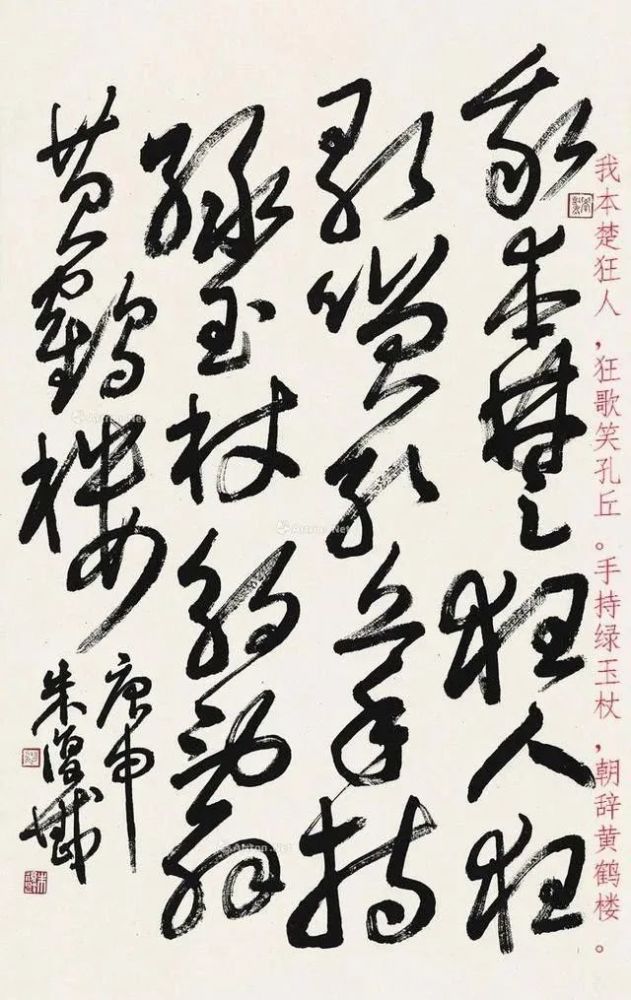 我本楚狂人，狂歌笑孔丘。手持绿玉杖，朝辞黄鹤楼。
我本楚狂人狂
歌笑孔丘手持
綠玉杖朝辭
黃鶴樓
庚申
朱復戡
Artron.Net